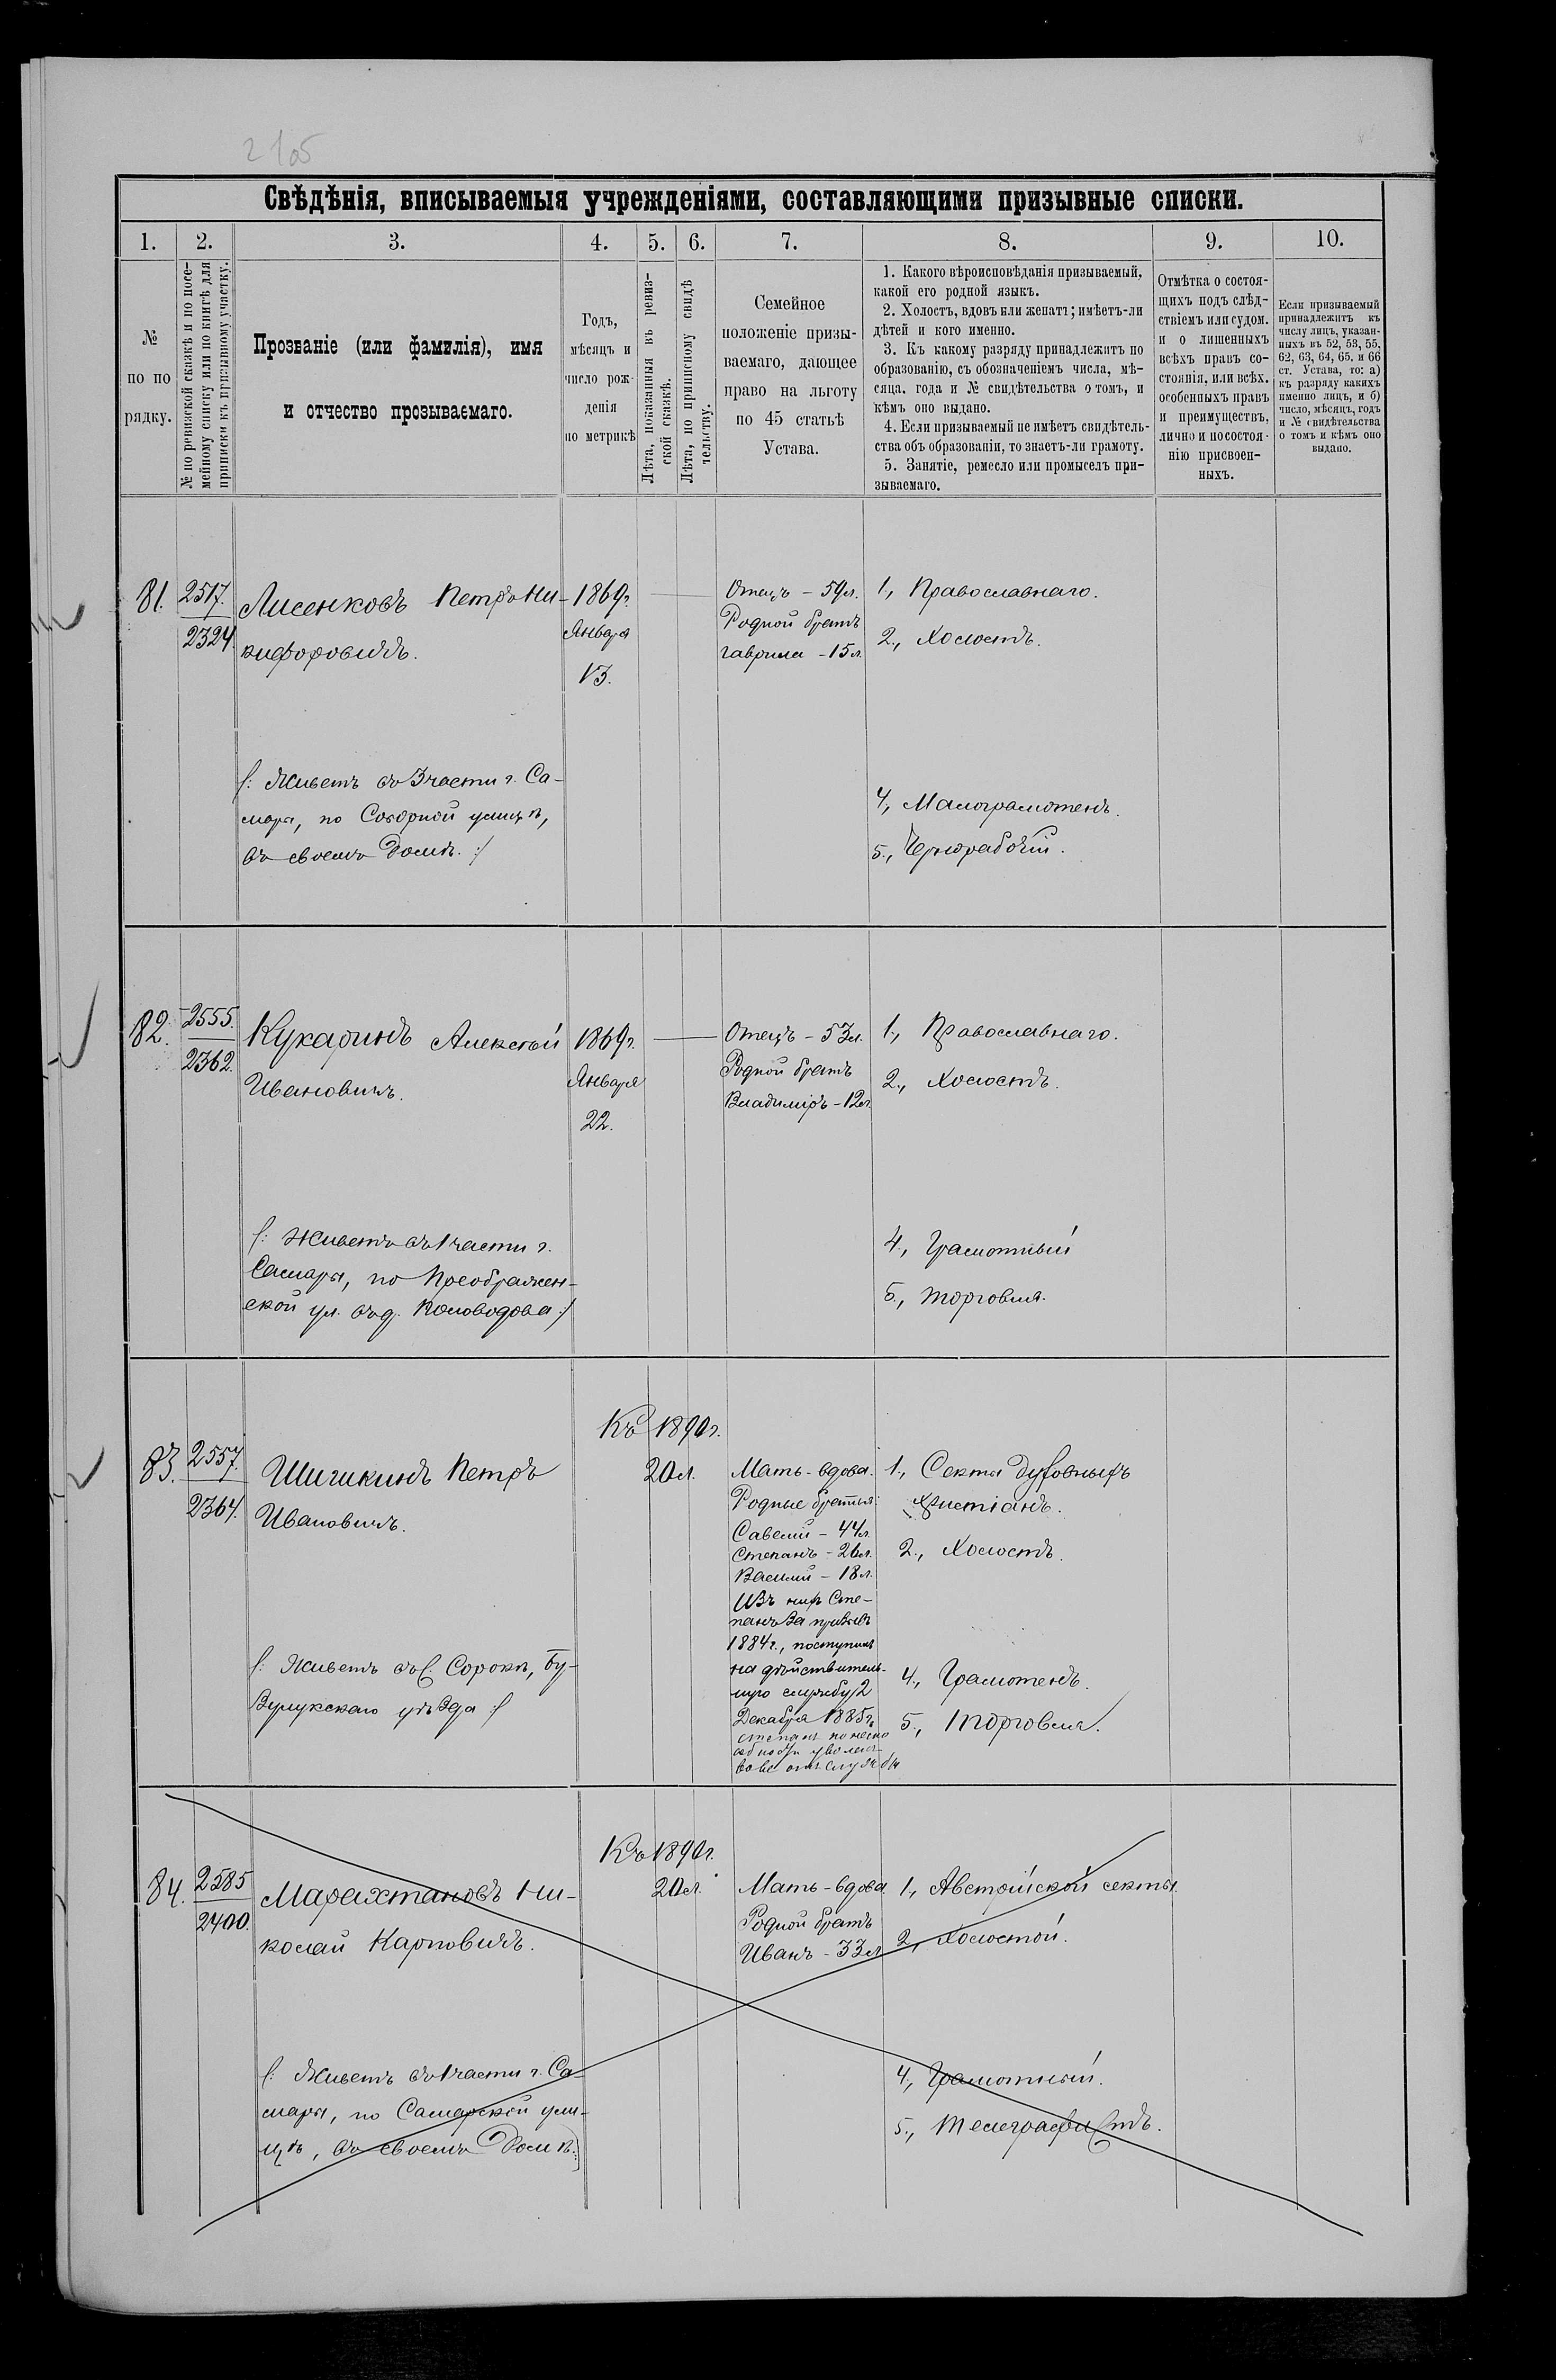 2105
Свѣдѣнія, вписываемыя учрежденіями, составляющими призывные списки.
1. 2. 3. 4. 5. 6. 7. 8. 9. 10.
№
по по
рядку.
№ по ревизской сказкѣ и по посе-
мейному списку или по книгѣ для
приписки къ призывному участку.
Прозваніе (или фамилія), имя
и отчество прозываемаго.
Годъ,
мѣсяцъ и
число рож-
денія
по метрикѣ
Лѣта, показанныя въ ревиз-
ской сказкѣ.
Лѣта, по приписному свидѣ
тельству.
Семейное
положеніе призы-
ваемаго, дающее
право на льготу
по 45 статьѣ
Устава.
1. Какого вѣроисповѣданія призываемый,
какой его родной языкъ.
2. Холостъ, вдовъ или женатъ; имѣетъ-ли
дѣтей и кого именно.
3. Къ какому разряду принадлежитъ по
образованію, съ обозначеніемъ числа, мѣ-
сяца, года и № свидѣтельства о томъ, и
кѣмъ оно выдано.
4. Если призываемый не имѣетъ свидѣтель-
ства объ образованіи, то знаетъ-ли грамоту.
5. Занятіе, ремесло или промыселъ при-
зываемаго.
Отмѣтка о состоя-
щихъ подъ слѣд-
ствіемъ или судом.
и о лишенныхъ
всѣхъ правъ со-
стоянія, или всѣх.
особенныхъ правъ
и преимуществъ,
лично и по состоя-
нію присвоен-
ныхъ.
Если призываемый
принадлежитъ къ
числу лицъ, указан-
ныхъ въ 52, 53, 55,
62, 63, 64, 65, и 66
ст. Устава, то: а)
къ разряду какихъ
именно лицъ, и б)
число, мѣсяцъ, годъ
и № свидѣтельства
о томъ и кѣмъ оно
выдано.
81.
2517.
2324.
Лисенковъ Петръ Ни-
кифоровичъ.
/: Живетъ въ 3 части г. Са-
мары, по Соборной улицѣ,
въ своемъ домѣ. :/
1869 г.
Января
13.
Отецъ - 59 л.
Родной братъ
Гаврила - 15 л.
1., Православнаго.
2., Холостъ.
4, Малограмотенъ.
5., Чернорабочій.
82.
2555.
2362.
Кукаринъ Алексѣй
Ивановичъ.
/: Живетъ въ 1 части г.
Самары, по Преображен-
ской ул. въ д. Коловодова :/
1869 г.
Января
22.
Отецъ - 53 л.
Родной братъ
Владиміръ - 12 л.
1., Православнаго.
2., Холостъ.
4., Грамотный
5., Торговля.
83.
2557.
2364.
Шичикинъ Петръ
Ивановичъ.
/: Живетъ въ с. Сорокѣ, Бу-
зулукскаго уѣзда :/
Къ 1890 г.
20 л.
Мать - вдова.
Родные братья:
Савелій - 44 л.
Степанъ - 26 л.
Василій - 18 л.
Изъ нихъ Сте-
панъ за призывъ
1884 г., поступилъ
на дѣйствитель-
ную службу 2
Декабря 1885 г.
отъ службы
1., Секты духовныхъ
христіанъ.
2., Холостъ.
4., Грамотенъ.
5., Торговля.
84.
2585
2400.
Марахтановъ Ни-
колай Карповичъ.
/: Живетъ въ 1 части г. Са-
мары, по Самарской ули-
цѣ, въ своемъ домѣ :/
Къ 1890 г.
20 л.
Мать - вдова
Родной братъ
Иванъ - 33 л.
1, Австрійской секты.
2, Холостой.
4, Грамотный.
5., Телеграфистъ.